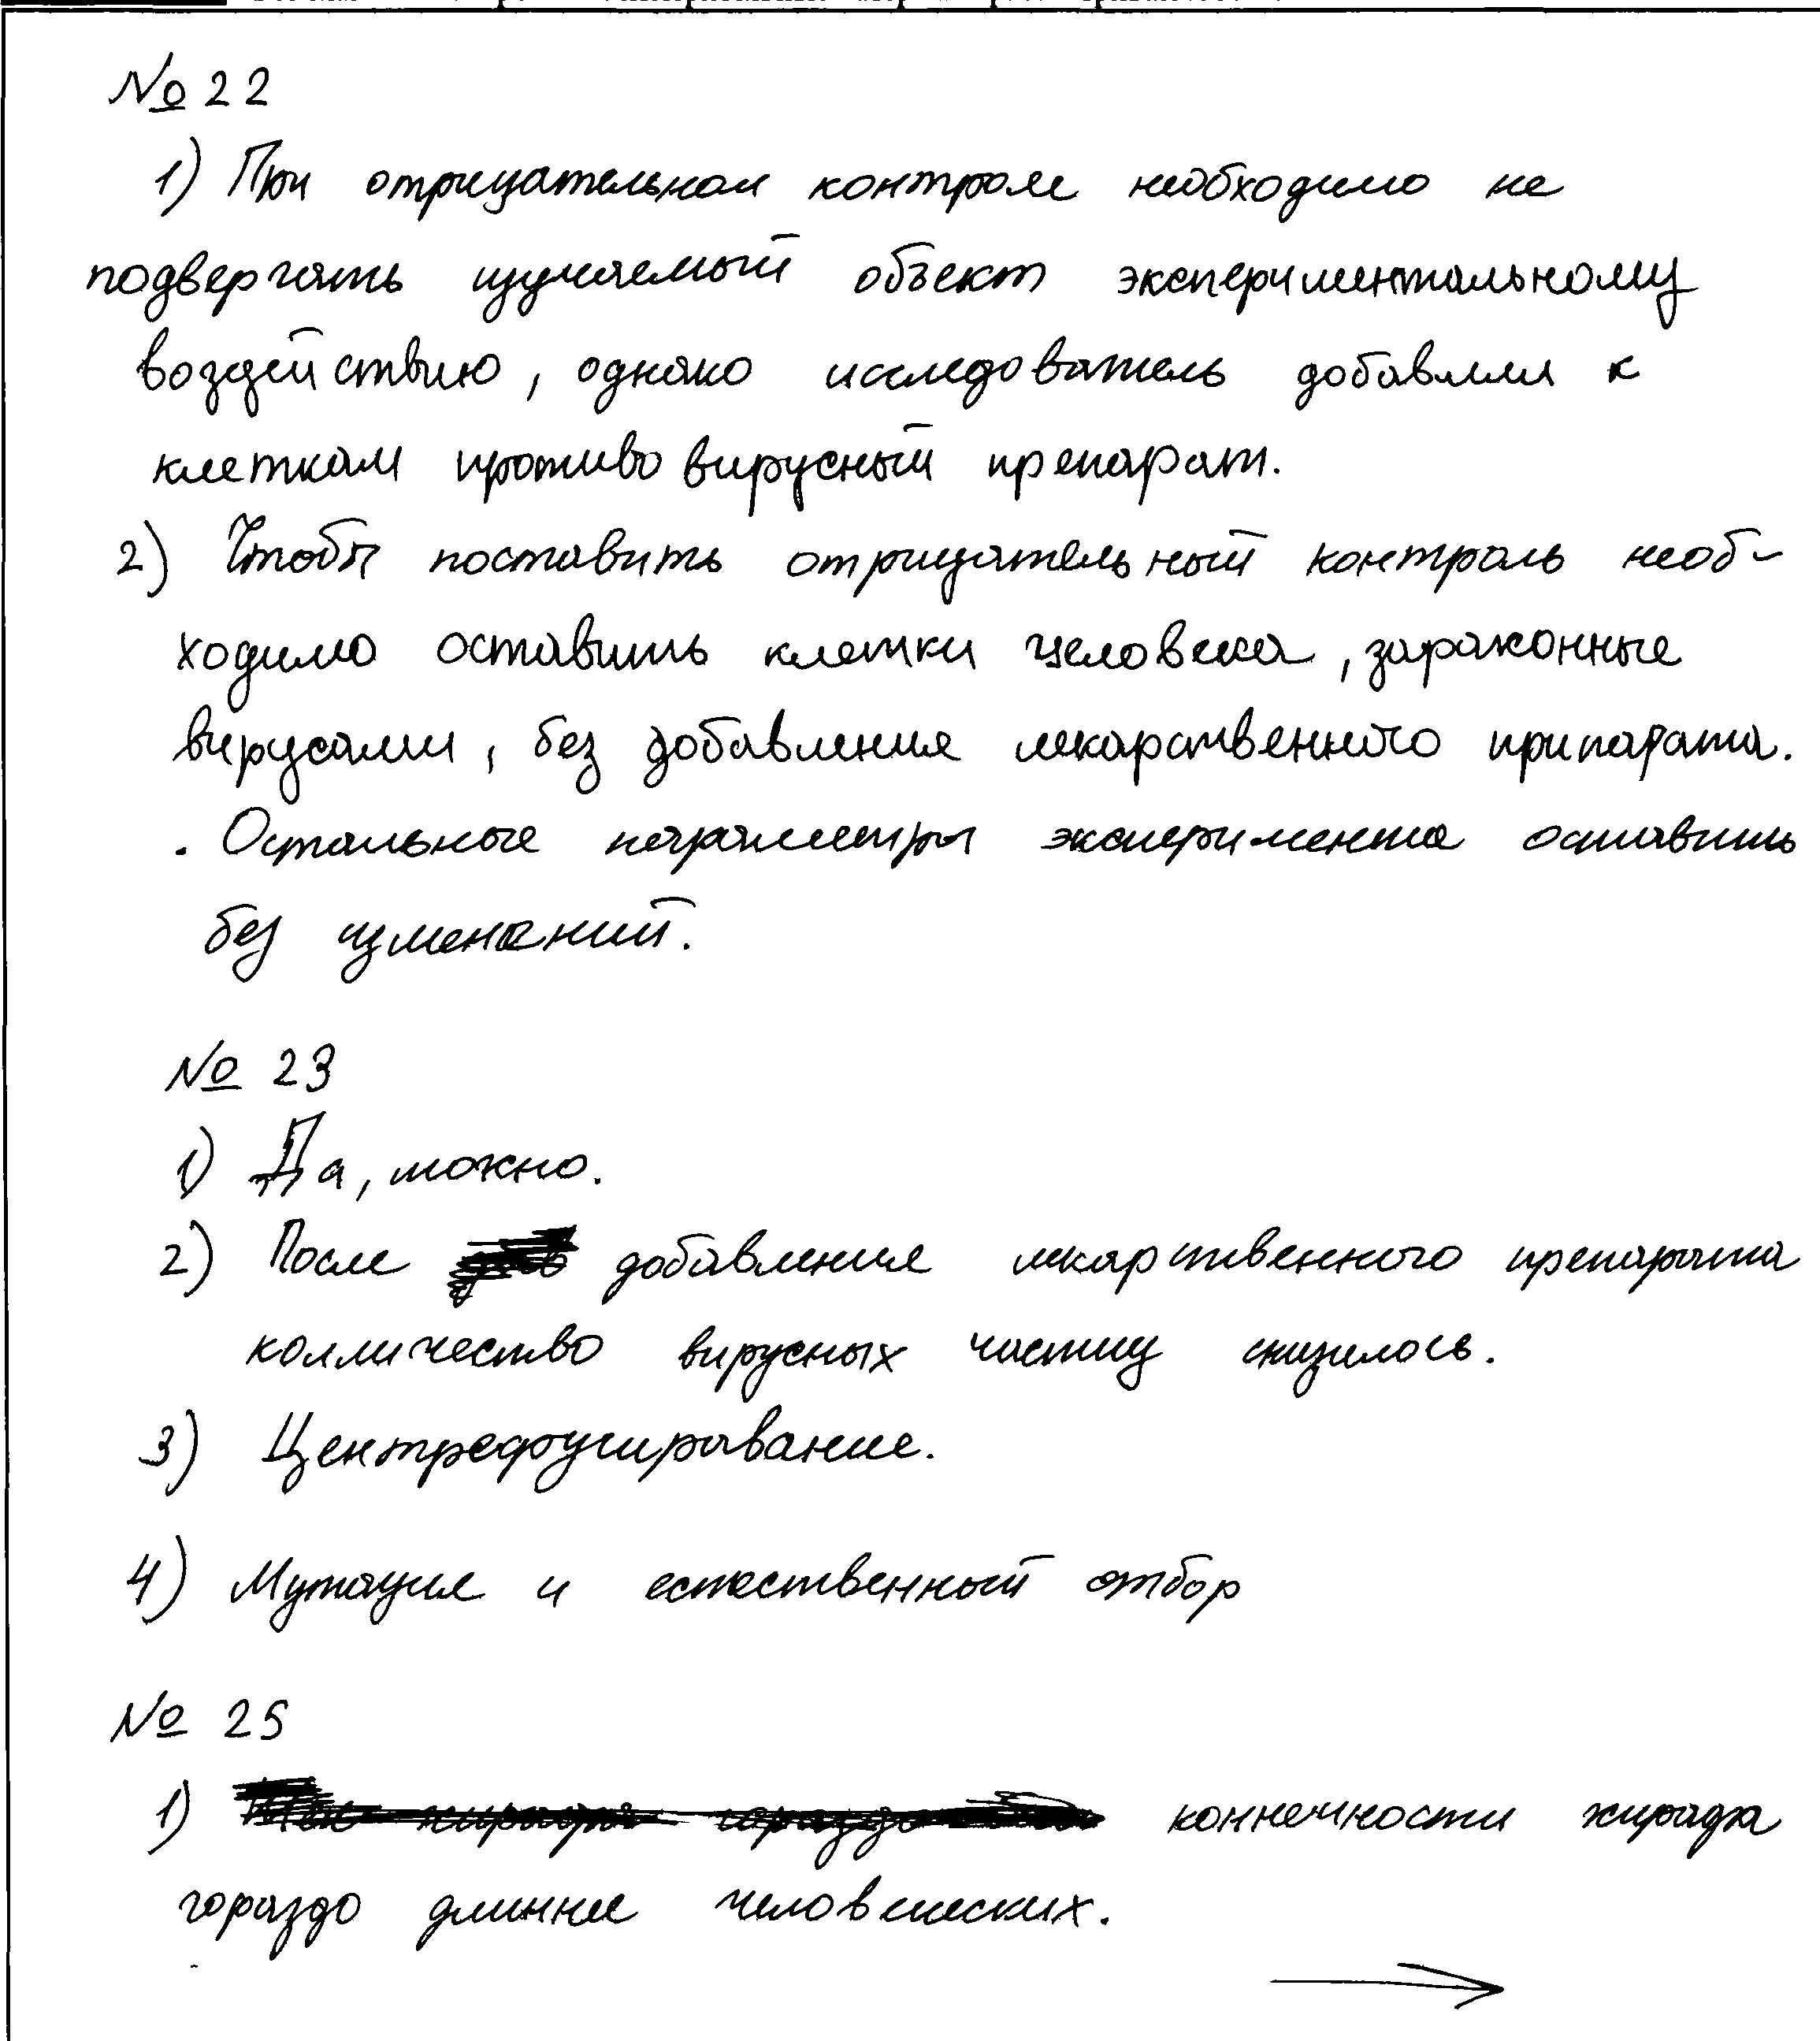 № 22
1) При отрицательном контроле необходимо не
подвергать изучаемый объект экспериментальному
воздействию, однако исследователь добавлял к
клеткам противовирусный препарат.
2) Чтобы поставить отрицательный контроль необ-
ходимо оставить клетки человека, заражонные
вирусами, без добавления лекарственного припарата.
. Остальные параметры эксперимента оставить
без изменений.
№ 23
1) Да, можно.
2) После добавления лекарственного препарата
колличество вирусных частиц снизилось.
3) Центрефугирование.
4) Мутация и естественный отбор
№ 25
1) коннечности жирафа
гораздо длиннее человеческих.